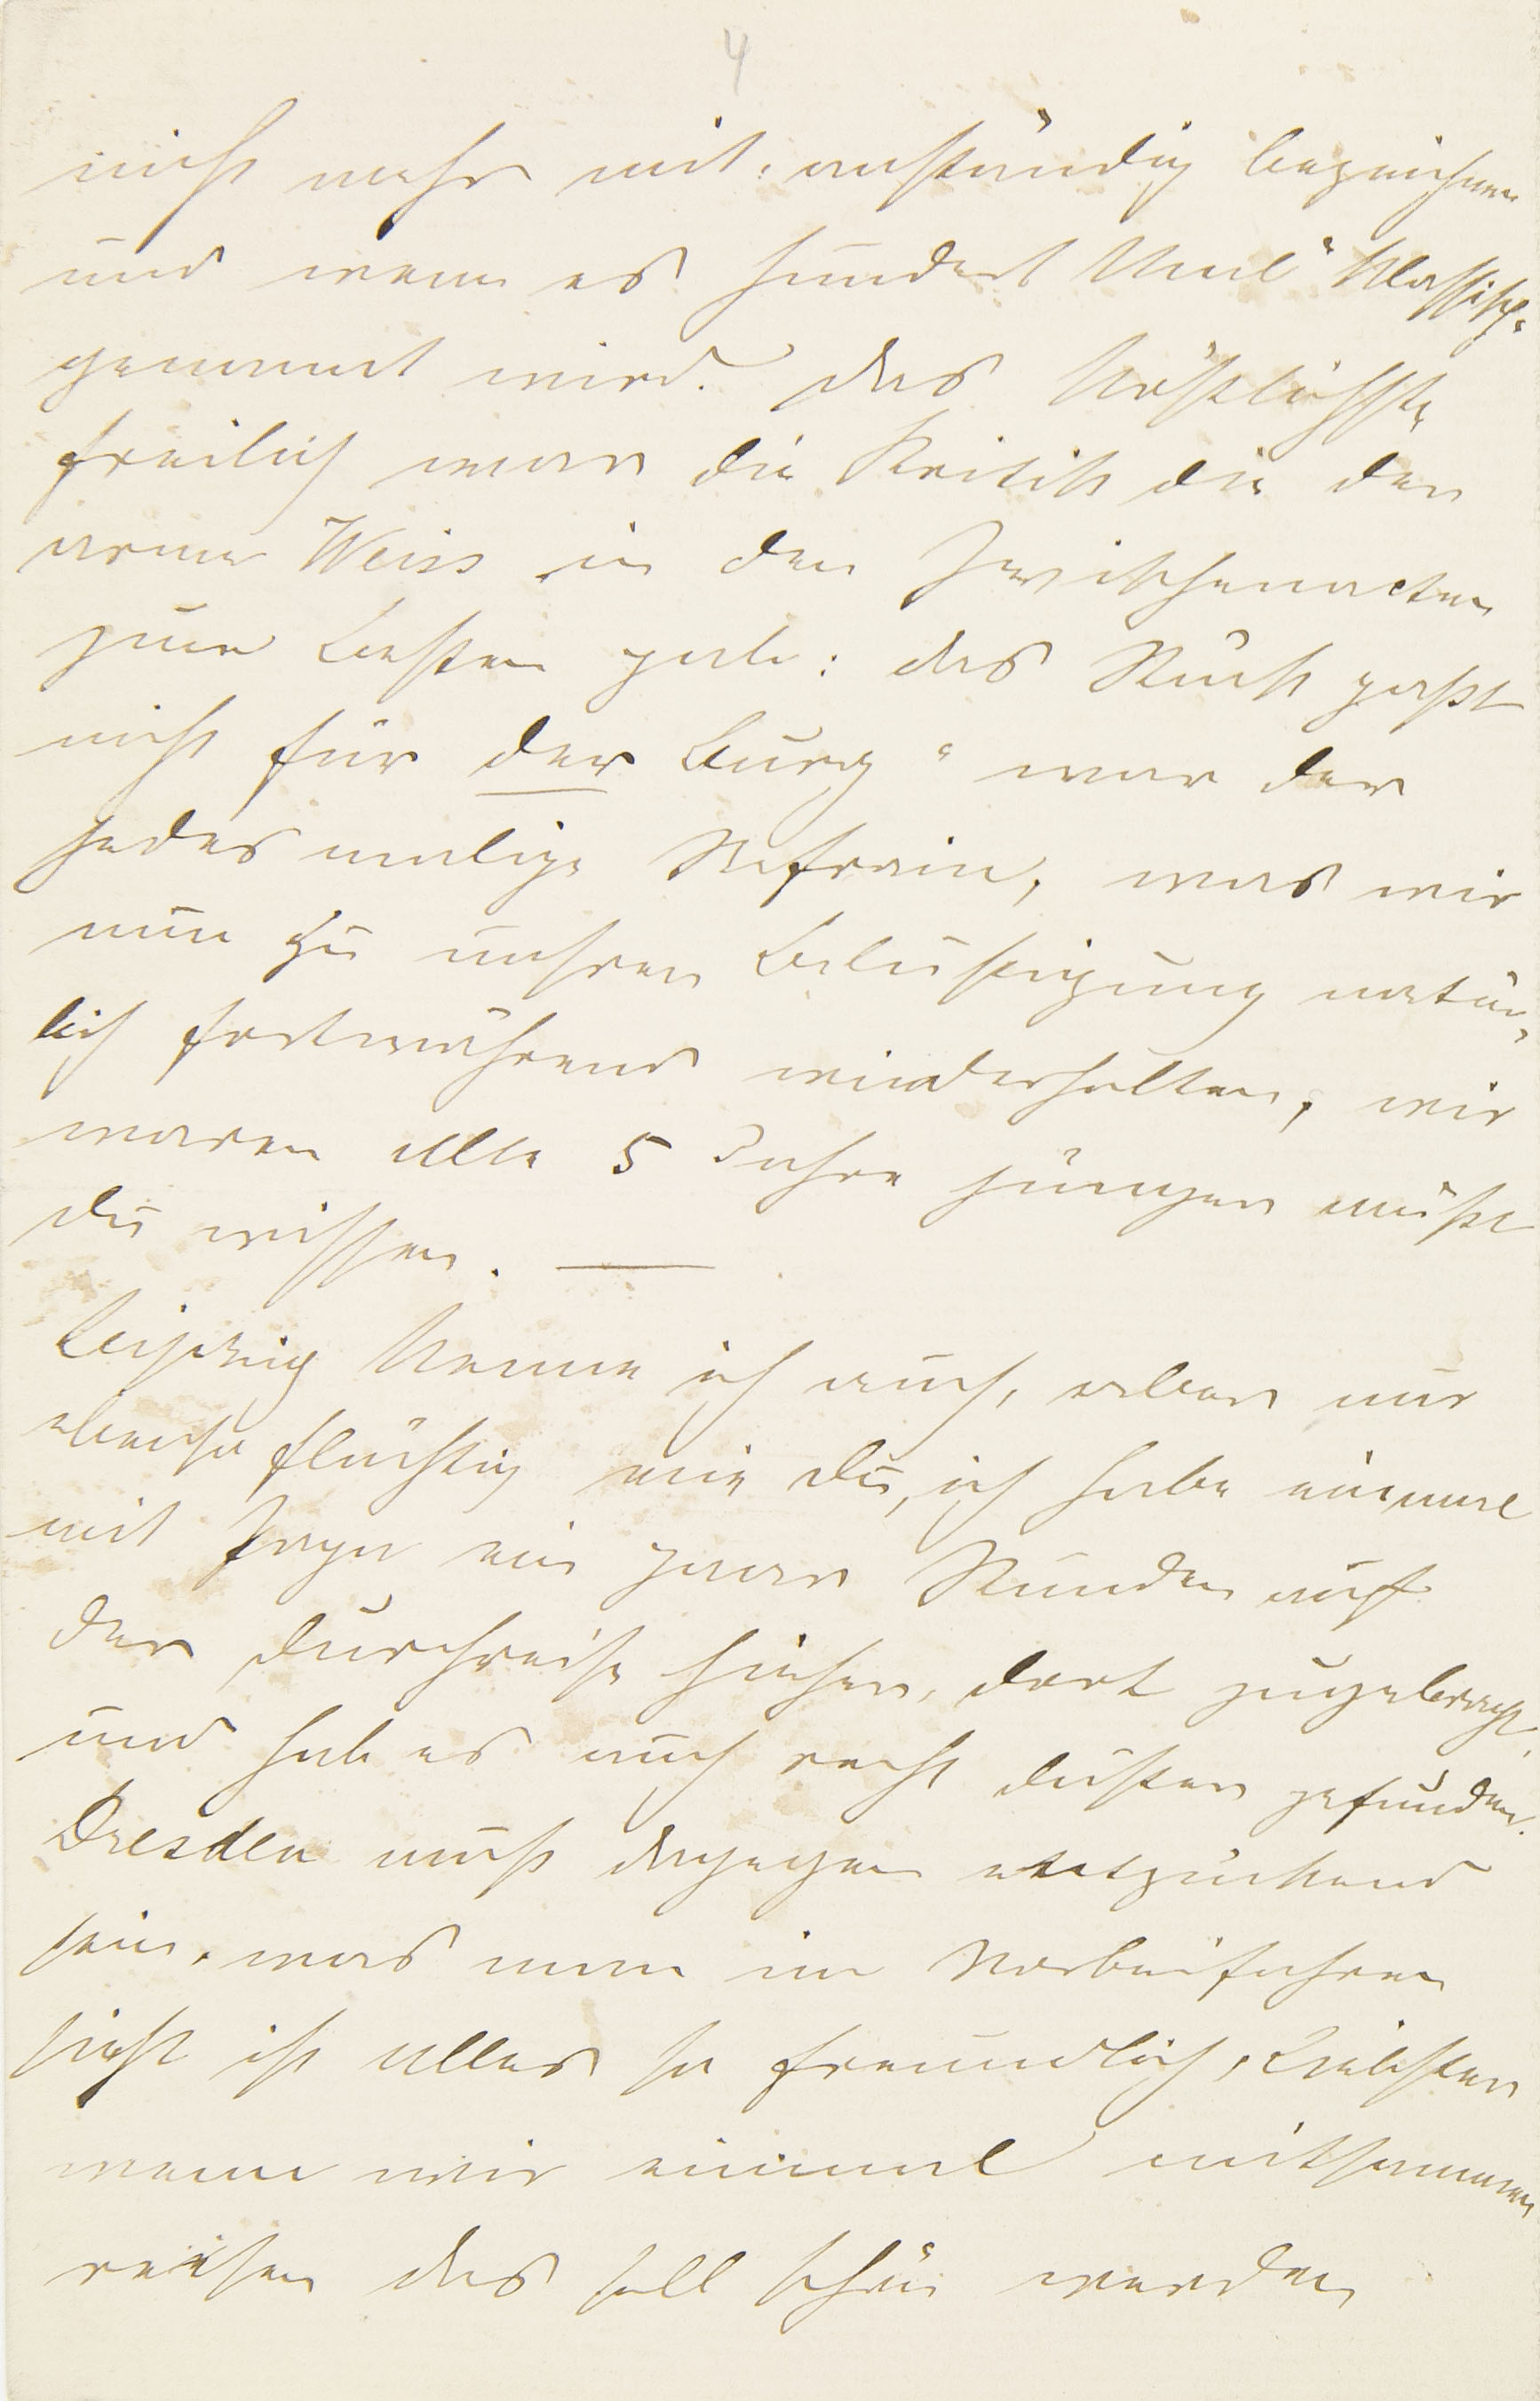 4
nicht mehr mit „anständig bezeichnen
und wenn es hundert Mal „klassisch"
genannt wird. Das köstlichste
freilich war die Kritik die der
arme Weiss in den Zwischenacten
zum Besten gab: das Stück paßt
nicht für der Burg" war der
jedesmalige Refrain, was wir
nun zu unserer Belustigung natür„
lich fortwährend wiederholten, wir
waren alle 5 Jahre jünger mußt
du wissen. —
Leipzig kenne ich auch, aber nur
ebenso flüchtig wie du, ich habe einmal
mit ein paar Stunden auf
der Durchreise hieher, dort zugebracht,
und hab es auch recht düster gefunden.
Dresden muß dagegen entzückend
sein, was man im Vorbeifahren
sieht ist alles so freundlich, Liebster
wenn wir einmal mitsammen
reisen das soll schön werden